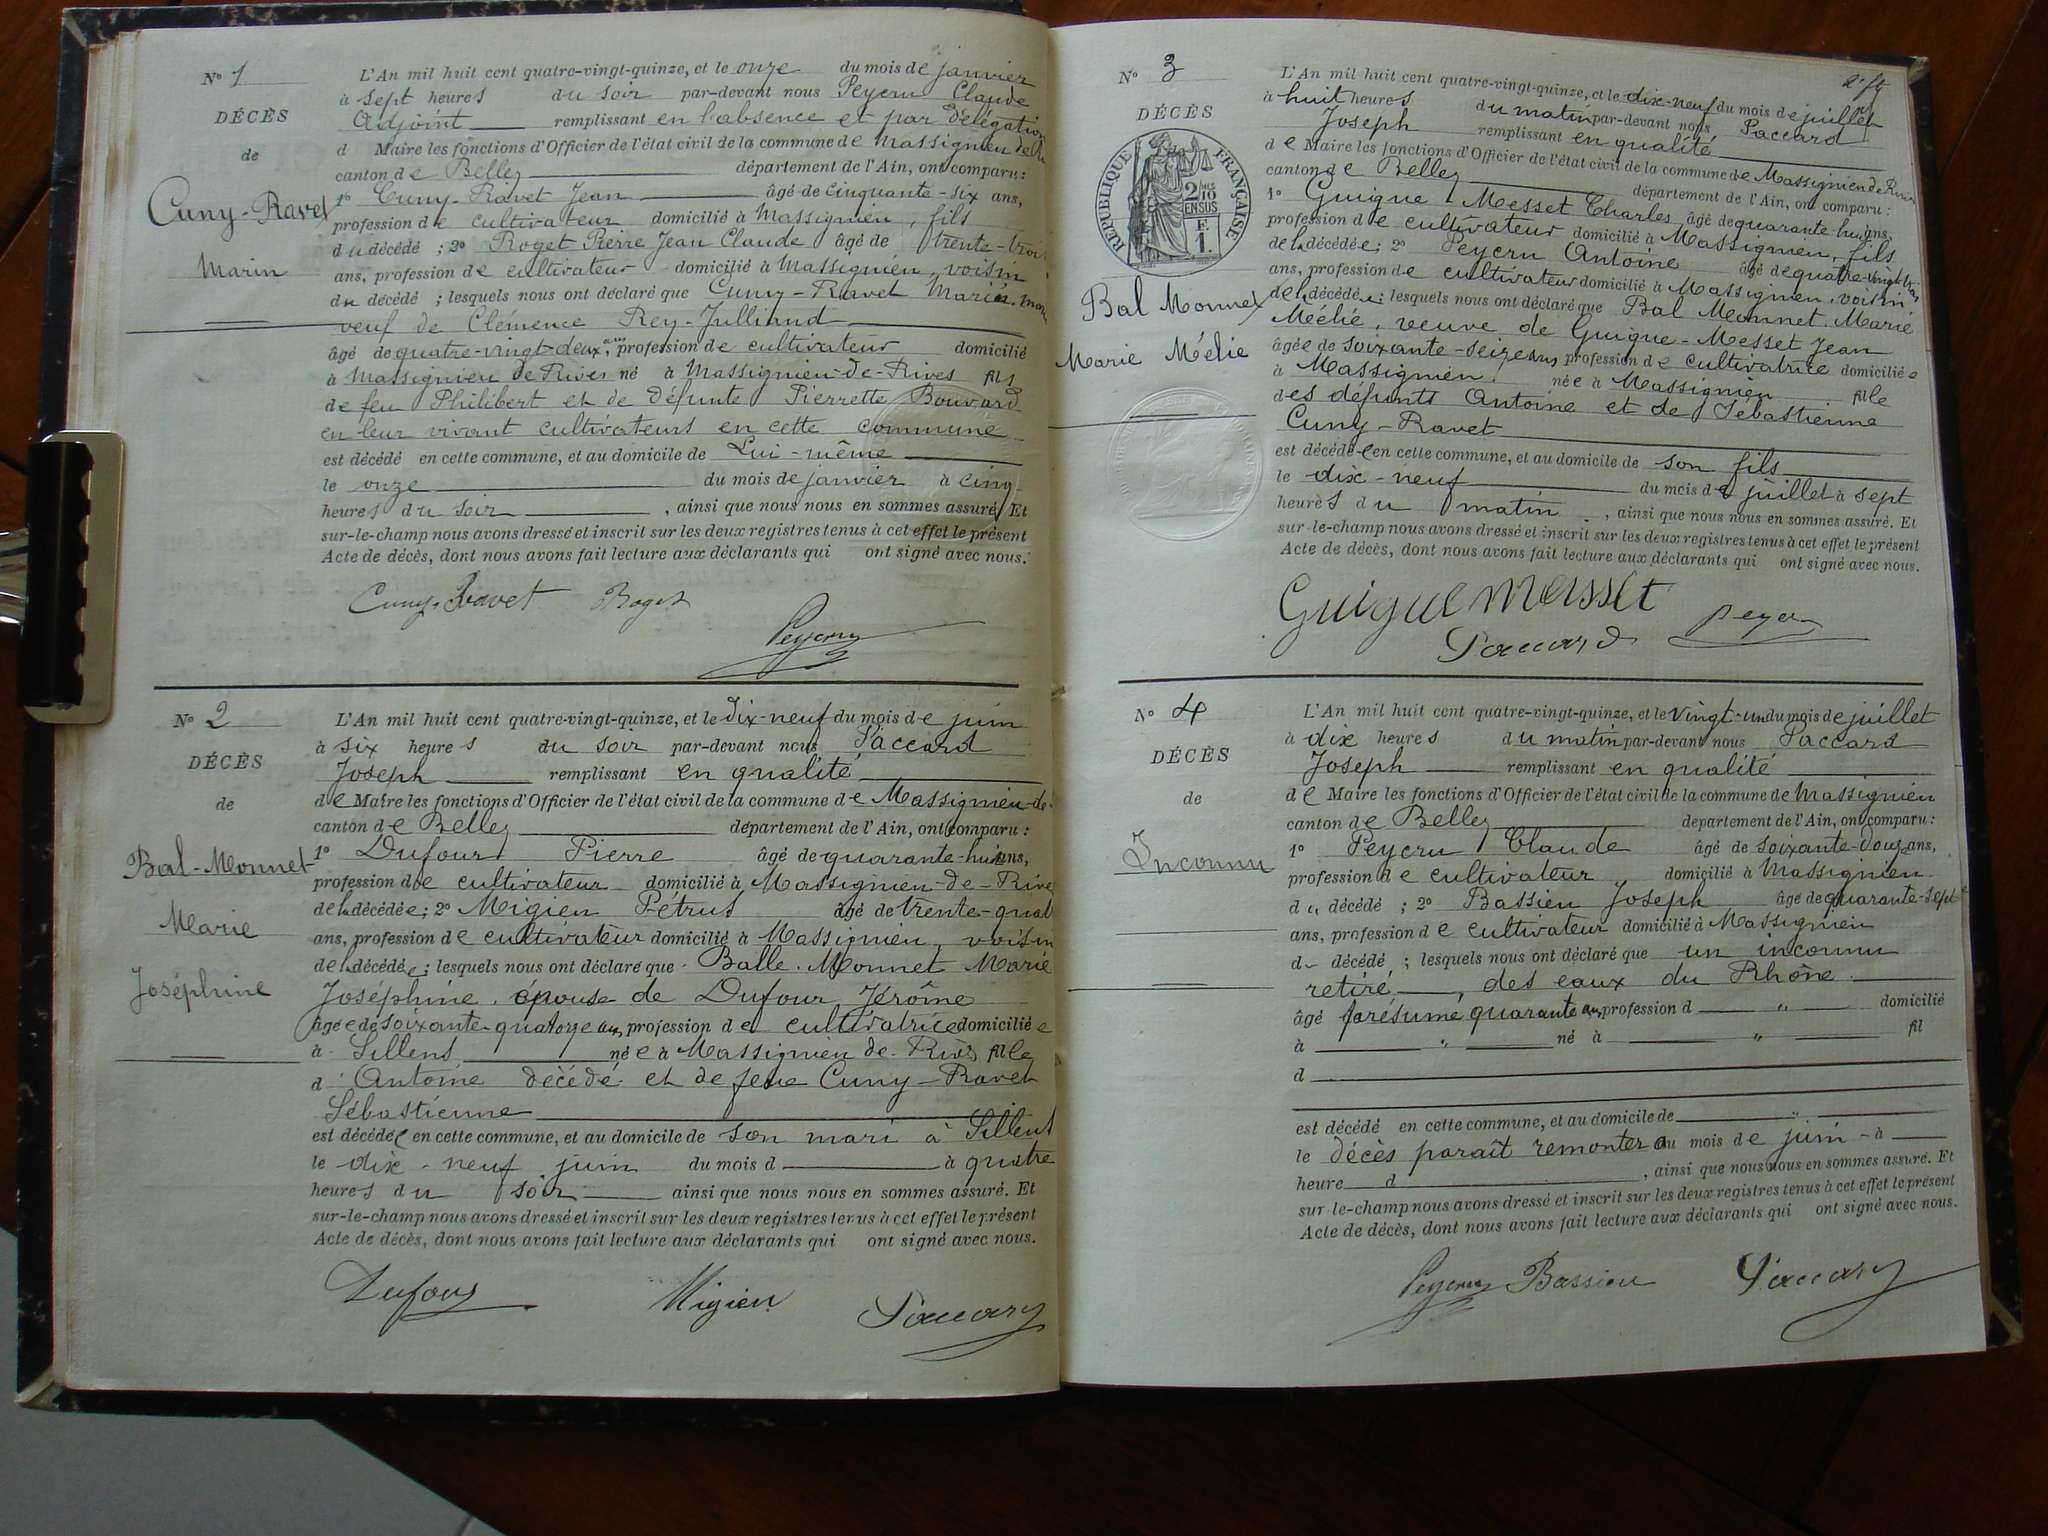 N° 1
DÉCÈS
de
Cuny-Ravet
Marin
L'An mil huit cent quatre-vingt-quinze, et le onze du mois de janvier
à sept heures du soir par-devant nous Peycru Claude
Adjoint remplissant en l'absence et par délégation
d Maire les fonctions d'Officier de l'état civil de la commune de Massignieu de
canton de Belley département de l'Ain, ont comparu :
1° Cuny-Ravet Jean âgé de cinquante-six ans,
profession de cultivateur domicilié à Massignieu, fils
du décédé ; 2° Roget Pierre Jean Claude âgé de trente-trois
ans, profession de cultivateur domicilié à Massignieu, voisin
du décédé ; lesquels nous ont déclaré que Cuny-Ravet Marin
veuf de Clémence Rey-Julliand
âgé de quatre-vingt-deux ans, profession de cultivateur domicilié
à Massignieu de Rives né à Massignieu-de-Rives fils
de feu Philibert et de défunte Pierrette Bouvard
en leur vivant cultivateurs en cette commune
est décédé en cette commune, et au domicile de Lui-même
le onze du mois de janvier à cinq
heures du soir, ainsi que nous nous en sommes assuré. Et
sur-le-champ nous avons dressé et inscrit sur les deux registres tenus à cet effet le présent
Acte de décès, dont nous avons fait lecture aux déclarants qui ont signé avec nous.
Cuny-Ravet Roget
Peycru
N° 2
DÉCÈS
de
Bal-Monnet
Marie
Joséphine
L'An mil huit cent quatre-vingt-quinze, et le dix-neuf du mois de juin
à six heures du soir par-devant nous Paccard
Joseph remplissant en qualité
de Maire les fonctions d'Officier de l'état civil de la commune de Massignieu-de-
canton de Belley département de l'Ain, ont comparu :
1° Dufour Pierre âgé de quarante-huit ans,
profession de cultivateur domicilié à Massignieu-de-Rive
de la décédée ; 2° Migieu Pétrus âgé de trente-quat
ans, profession de cultivateur domicilié à Massignieu, voisin
de la décédée ; lesquels nous ont déclaré que Balle-Monnet Marie
Joséphine, épouse de Dufour Jérôme
âgée de soixante-quatorze ans, profession de cultivatrice domiciliée
à Sillens née à Massignieu de Rives fille
d Antoine décédé et de feue Cuny-Ravet
Sébastienne
est décédée en cette commune, et au domicile de son mari à Sillens
le dix-neuf juin du mois d à quatre
heures du soir ainsi que nous nous en sommes assuré. Et
sur-le-champ nous avons dressé et inscrit sur les deux registres tenus à cet effet le présent
Acte de décès, dont nous avons fait lecture aux déclarants qui ont signé avec nous.
Dufour Migieu Paccard
N° 3
DÉCÈS
RÉPUBLIQUE FRANÇAISE
2/10 EN SUS
F. 1.
Bal Monnet
Marie Mélie
L'An mil huit cent quatre-vingt-quinze, et le dix-neuf du mois de juillet
à huit heures du matin par-devant nous Paccard
Joseph remplissant en qualité
de Maire les fonctions d'Officier de l'état civil de la commune de Massignieu de Rives
canton de Belley département de l'Ain, ont comparu :
1° Guigue Messet Charles âgé de quarante-huit ans,
profession de cultivateur domicilié à Massignieu, fils
de la décédée ; 2° Peycru Antoine âgé de quatre-vingt-
ans, profession de cultivateur domicilié à Massignieu, voisin
de la décédée ; lesquels nous ont déclaré que Bal Monnet Marie
Mélie, veuve de Guigue-Messet Jean
âgée de soixante-seize ans profession de cultivatrice domiciliée
à Massignieu née à Massignieu fille
des défunts Antoine et de Sébastienne
Cuny-Ravet
est décédée en cette commune, et au domicile de son fils
le dix-neuf du mois de juillet à sept
heures du matin, ainsi que nous nous en sommes assuré. Et
sur-le-champ nous avons dressé et inscrit sur les deux registres tenus à cet effet le présent
Acte de décès, dont nous avons fait lecture aux déclarants qui ont signé avec nous.
Guigue Messet
Paccard Peycru
N° 4
DÉCÈS
de
Inconnu
L'An mil huit cent quatre-vingt-quinze, et le vingt-un du mois de juillet
à dix heures du matin par-devant nous Paccard
Joseph remplissant en qualité
de Maire les fonctions d'Officier de l'état civil de la commune de Massignieu
canton de Belley département de l'Ain, ont comparu :
1° Peycru Claude âgé de soixante-douze ans,
profession de cultivateur domicilié à Massignieu
d " décédé ; 2° Bassieu Joseph âgé de quarante-sept
ans, profession de cultivateur domicilié à Massignieu
d décédé ; lesquels nous ont déclaré que un inconnu
retiré des eaux du Rhône
âgé présumé quarante ans profession d " domicilié
à " né à " fil
d
est décédé en cette commune, et au domicile de "
le décès paraît remonter au mois de juin à
heure d , ainsi que nous nous en sommes assuré. Et
sur-le-champ nous avons dressé et inscrit sur les deux registres tenus à cet effet le présent
Acte de décès, dont nous avons fait lecture aux déclarants qui ont signé avec nous.
Peycru Bassieu Paccard